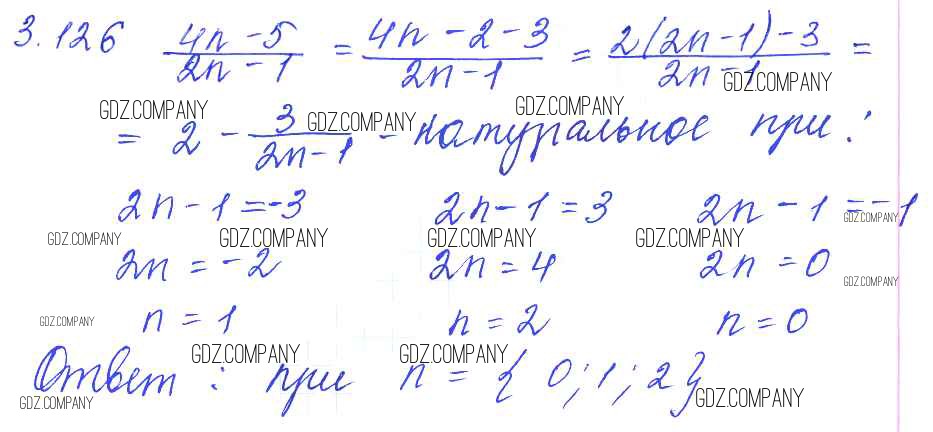 3.126 (4n - 5)/(2n - 1) = (4n - 2 - 3)/(2n - 1) = (2(2n - 1) - 3)/(2n - 1) =
GDZ.COMPANY
GDZ.COMPANY GDZ.COMPANY GDZ.COMPANY
= 2 - 3/(2n - 1) - натуральное при:
2n - 1 = -3 2n - 1 = 3 2n - 1 = -1
GDZ.COMPANY
GDZ.COMPANY GDZ.COMPANY GDZ.COMPANY GDZ.COMPANY
2n = -2 2n = 4 2n = 0
GDZ.COMPANY
n = 1 n = 2 n = 0
GDZ.COMPANY
GDZ.COMPANY GDZ.COMPANY
Ответ: при n = { 0; 1; 2 }
GDZ.COMPANY GDZ.COMPANY